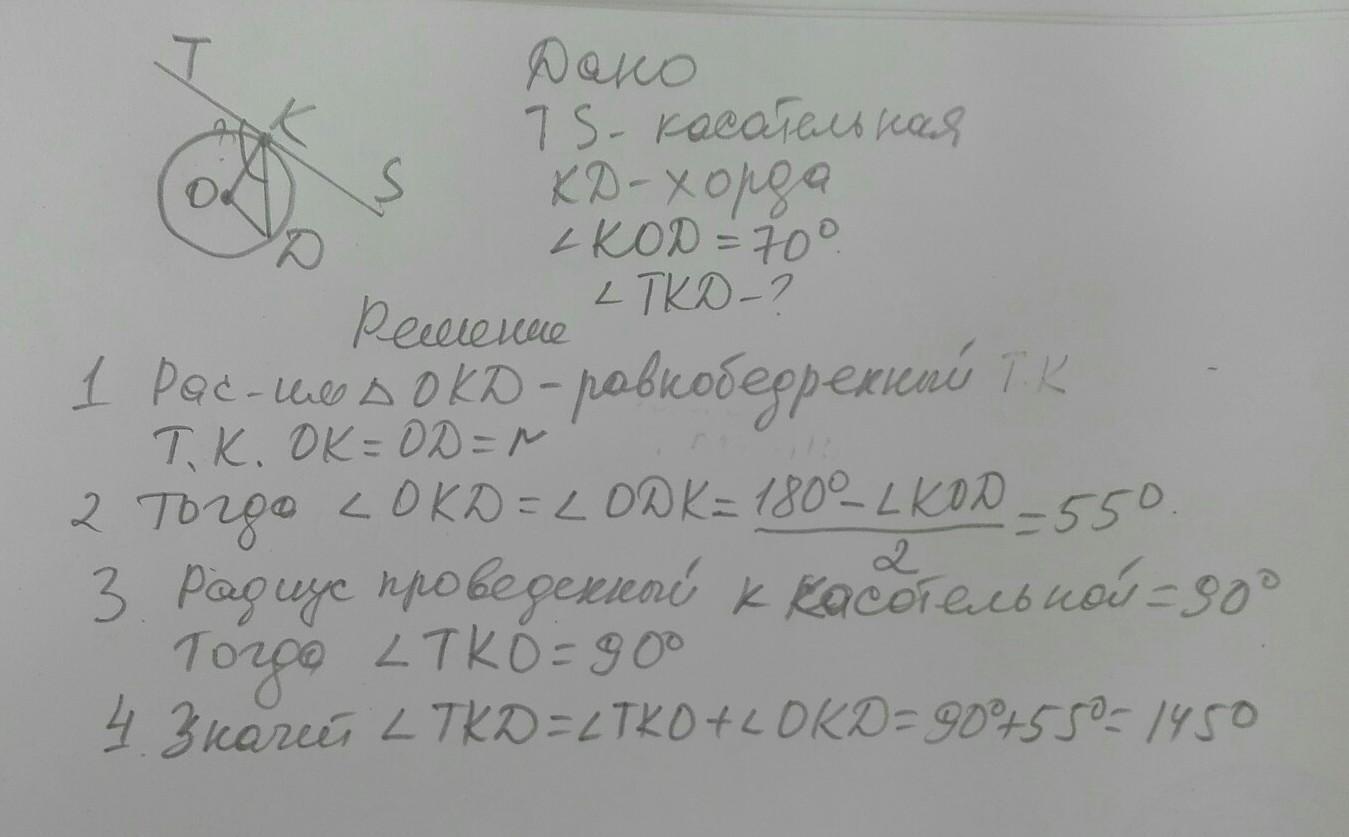 T
K
O
S
D
Дано
TS - касательная
KD - хорда
∠KOD = 70°
∠TKD - ?
Решение
1 Рас-им △ OKD - равнобедренный Т.К
Т.К. OK = OD = r
2 Тогда ∠OKD = ∠ODK = (180° - ∠KOD)/2 = 55°.
3 Радиус проведенный к касательной = 90°
Тогда ∠TKO = 90°
4. Значит ∠TKD = ∠TKO + ∠OKD = 90° + 55° = 145°